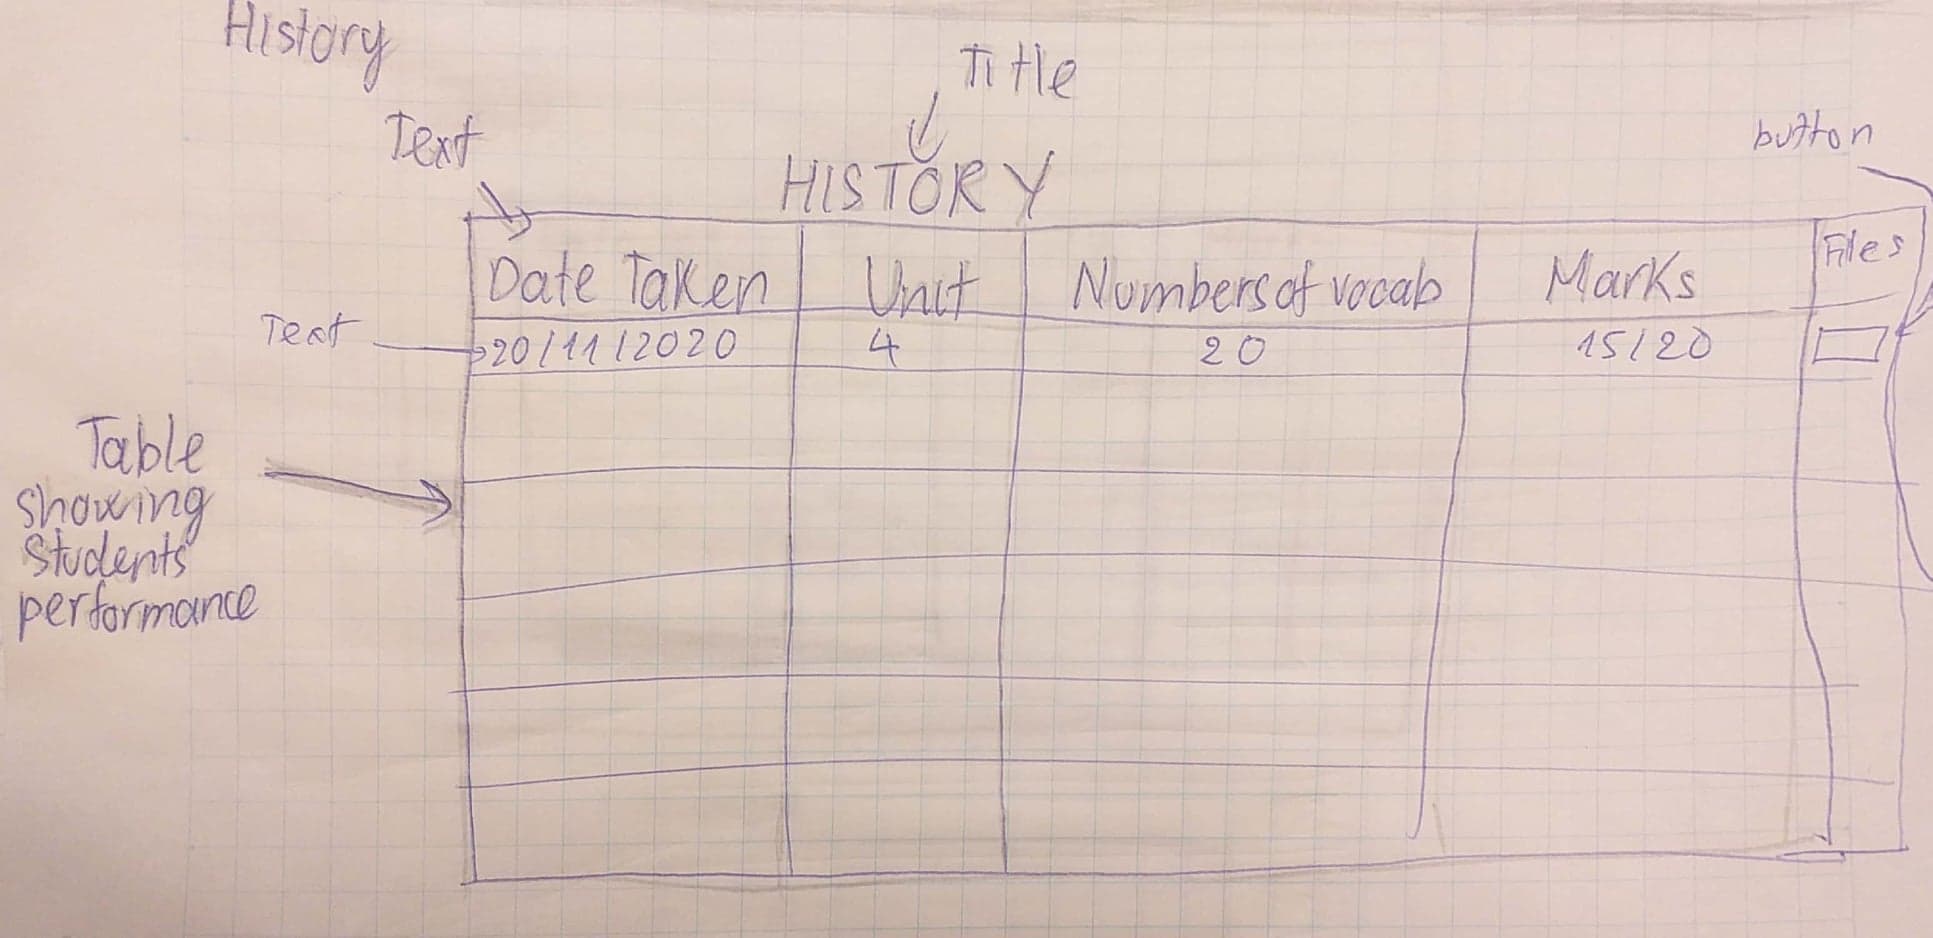 History
Title
Text
button
HISTORY
Date Taken Unit Numbers of vocab Marks Files
Text 20/11/2020 4 20 15/20
Table
showing
Students'
performance